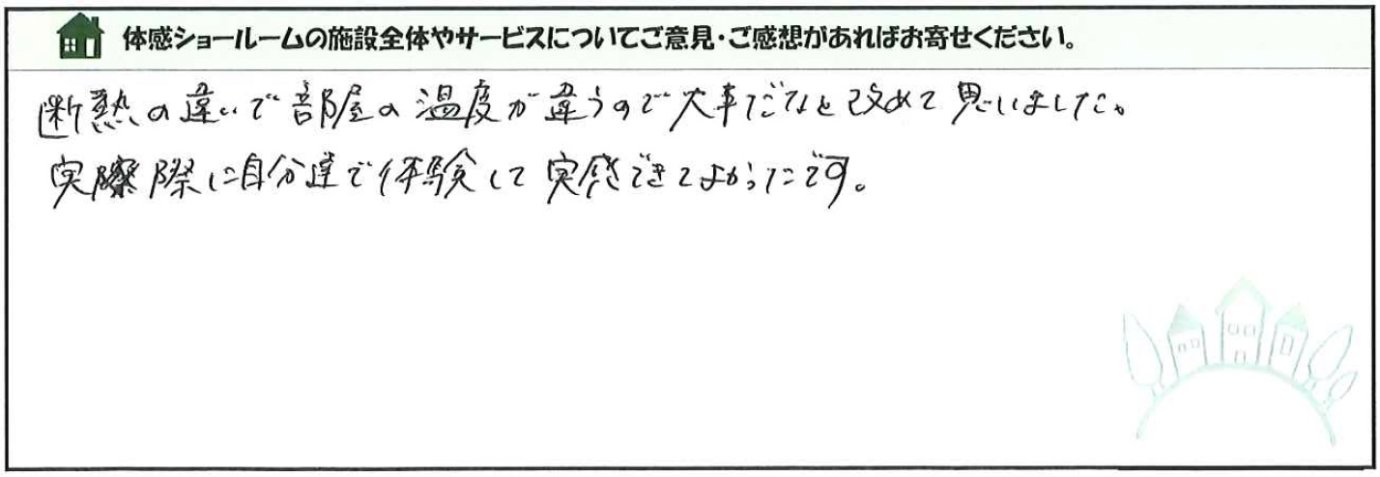 体感ショールームの施設全体やサービスについてご意見・ご感想があればお寄せください。
断熱の違いで部屋の温度が違うので大事だなと改めて思いました。
実際に自分達で体験して実感できてよかったです。